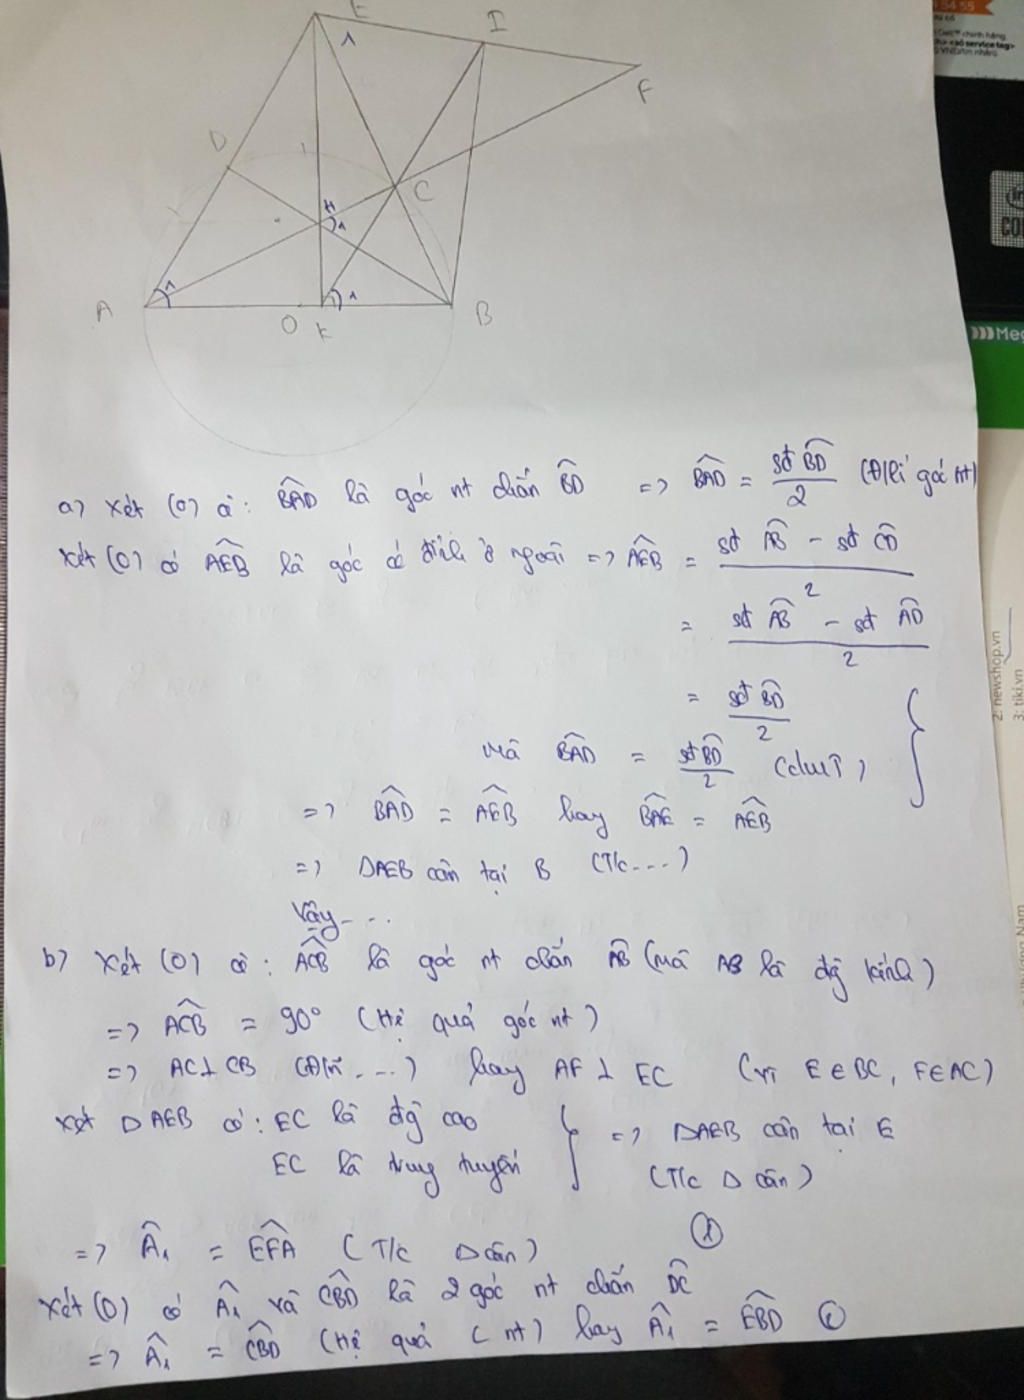 E
I
F
D
C
H
A
O
K
B
1
1
1
1
a) Xét (O) có: BAD là góc nt chắn BD => BAD = sđ BD / 2 (Đlí góc nt)
Xét (O) có AEB là góc có đỉnh ở ngoài => AEB = sđ AB - sđ CD / 2
= sđ AB - sđ AD / 2
= sđ BD / 2
mà BAD = sđ BD / 2 (cmt)
=> BAD = AEB hay BAE = AEB
=> ΔAEB cân tại B (T/c...)
Vậy...
b) Xét (O) có: ACB là góc nt chắn AB (mà AB là đg kính)
=> ACB = 90° (Hệ quả góc nt)
=> AC ⊥ CB (Đ/n ...) hay AF ⊥ EC (vì E ∈ BC, F ∈ AC)
Xét ΔAEB có: EC là đg cao
EC là trung tuyến } => ΔAEB cân tại E
(T/c Δ cân)
=> A₁ = EFA (T/c Δ cân) (1)
Xét (O) có A₁ và CBD là 2 góc nt chắn DC
=> A₁ = CBD (Hệ quả nt) hay A₁ = EBD
54 55
chính hãng
<số service tag>
COR
Meg
2: newshop.vn
3: tiki.vn
Nam